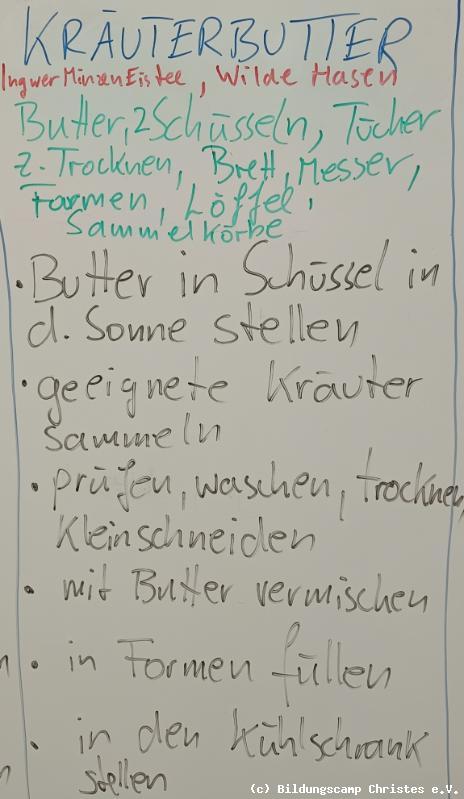 KRÄUTERBUTTER
IngwerMinzenEistee, Wilde Hasen
Butter, 2 Schüsseln, Tücher
z. Trocknen, Brett, Messer,
Formen, Löffel,
Sammelkörbe
• Butter in Schüssel in
d. Sonne stellen
• geeignete Kräuter
sammeln
• prüfen, waschen, trocknen,
kleinschneiden
• mit Butter vermischen
• in Formen füllen
• in den Kühlschrank
stellen
(c) Bildungscamp Christes e.V.